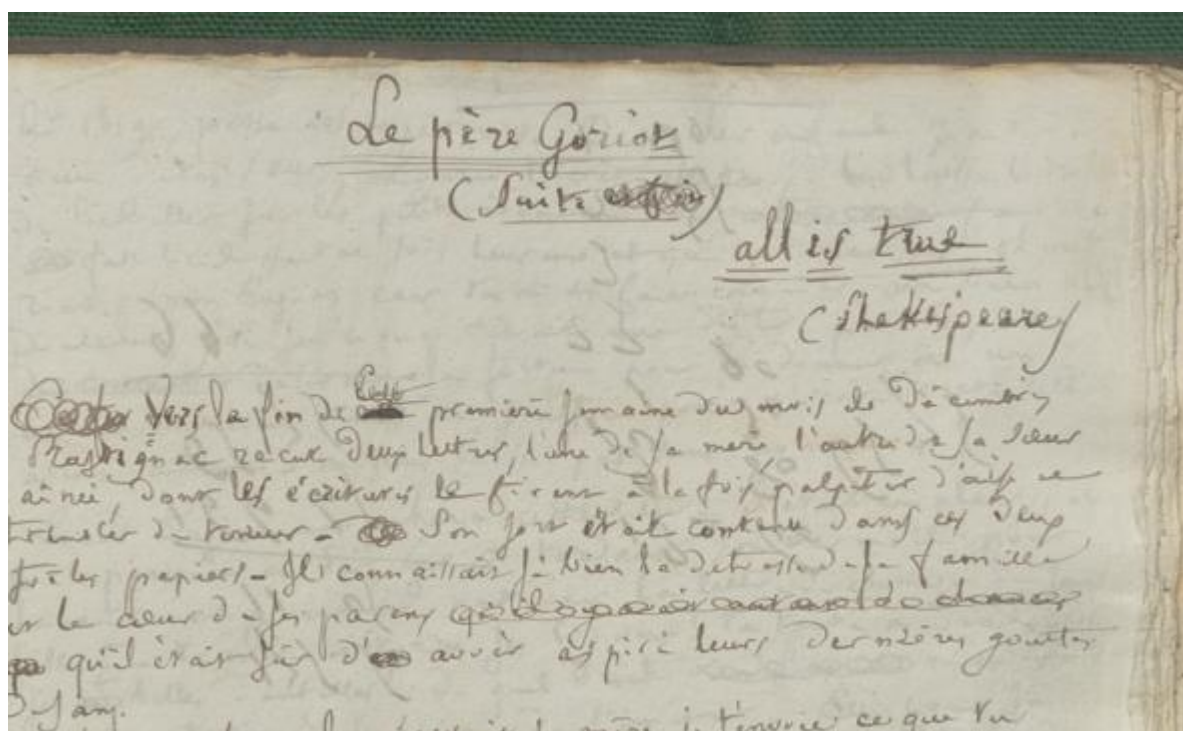 Le père Goriot
(Suite et fin)
all is true
(Shakespeare)
Vers la fin de cette première semaine du mois de Décembre
Rastignac reçut deux lettres, l'une de sa mère l'autre de sa sœur
ainée, dont les écritures le firent à la fois palpiter d'aise et
trembler de terreur - Son sort était contenu dans ces deux
frêles papiers - Il connaissait si bien la détresse de sa famille
et le cœur de ses parens
qu'il était sûr d'avoir aspiré leurs dernières gouttes
de sang.
ce que tu